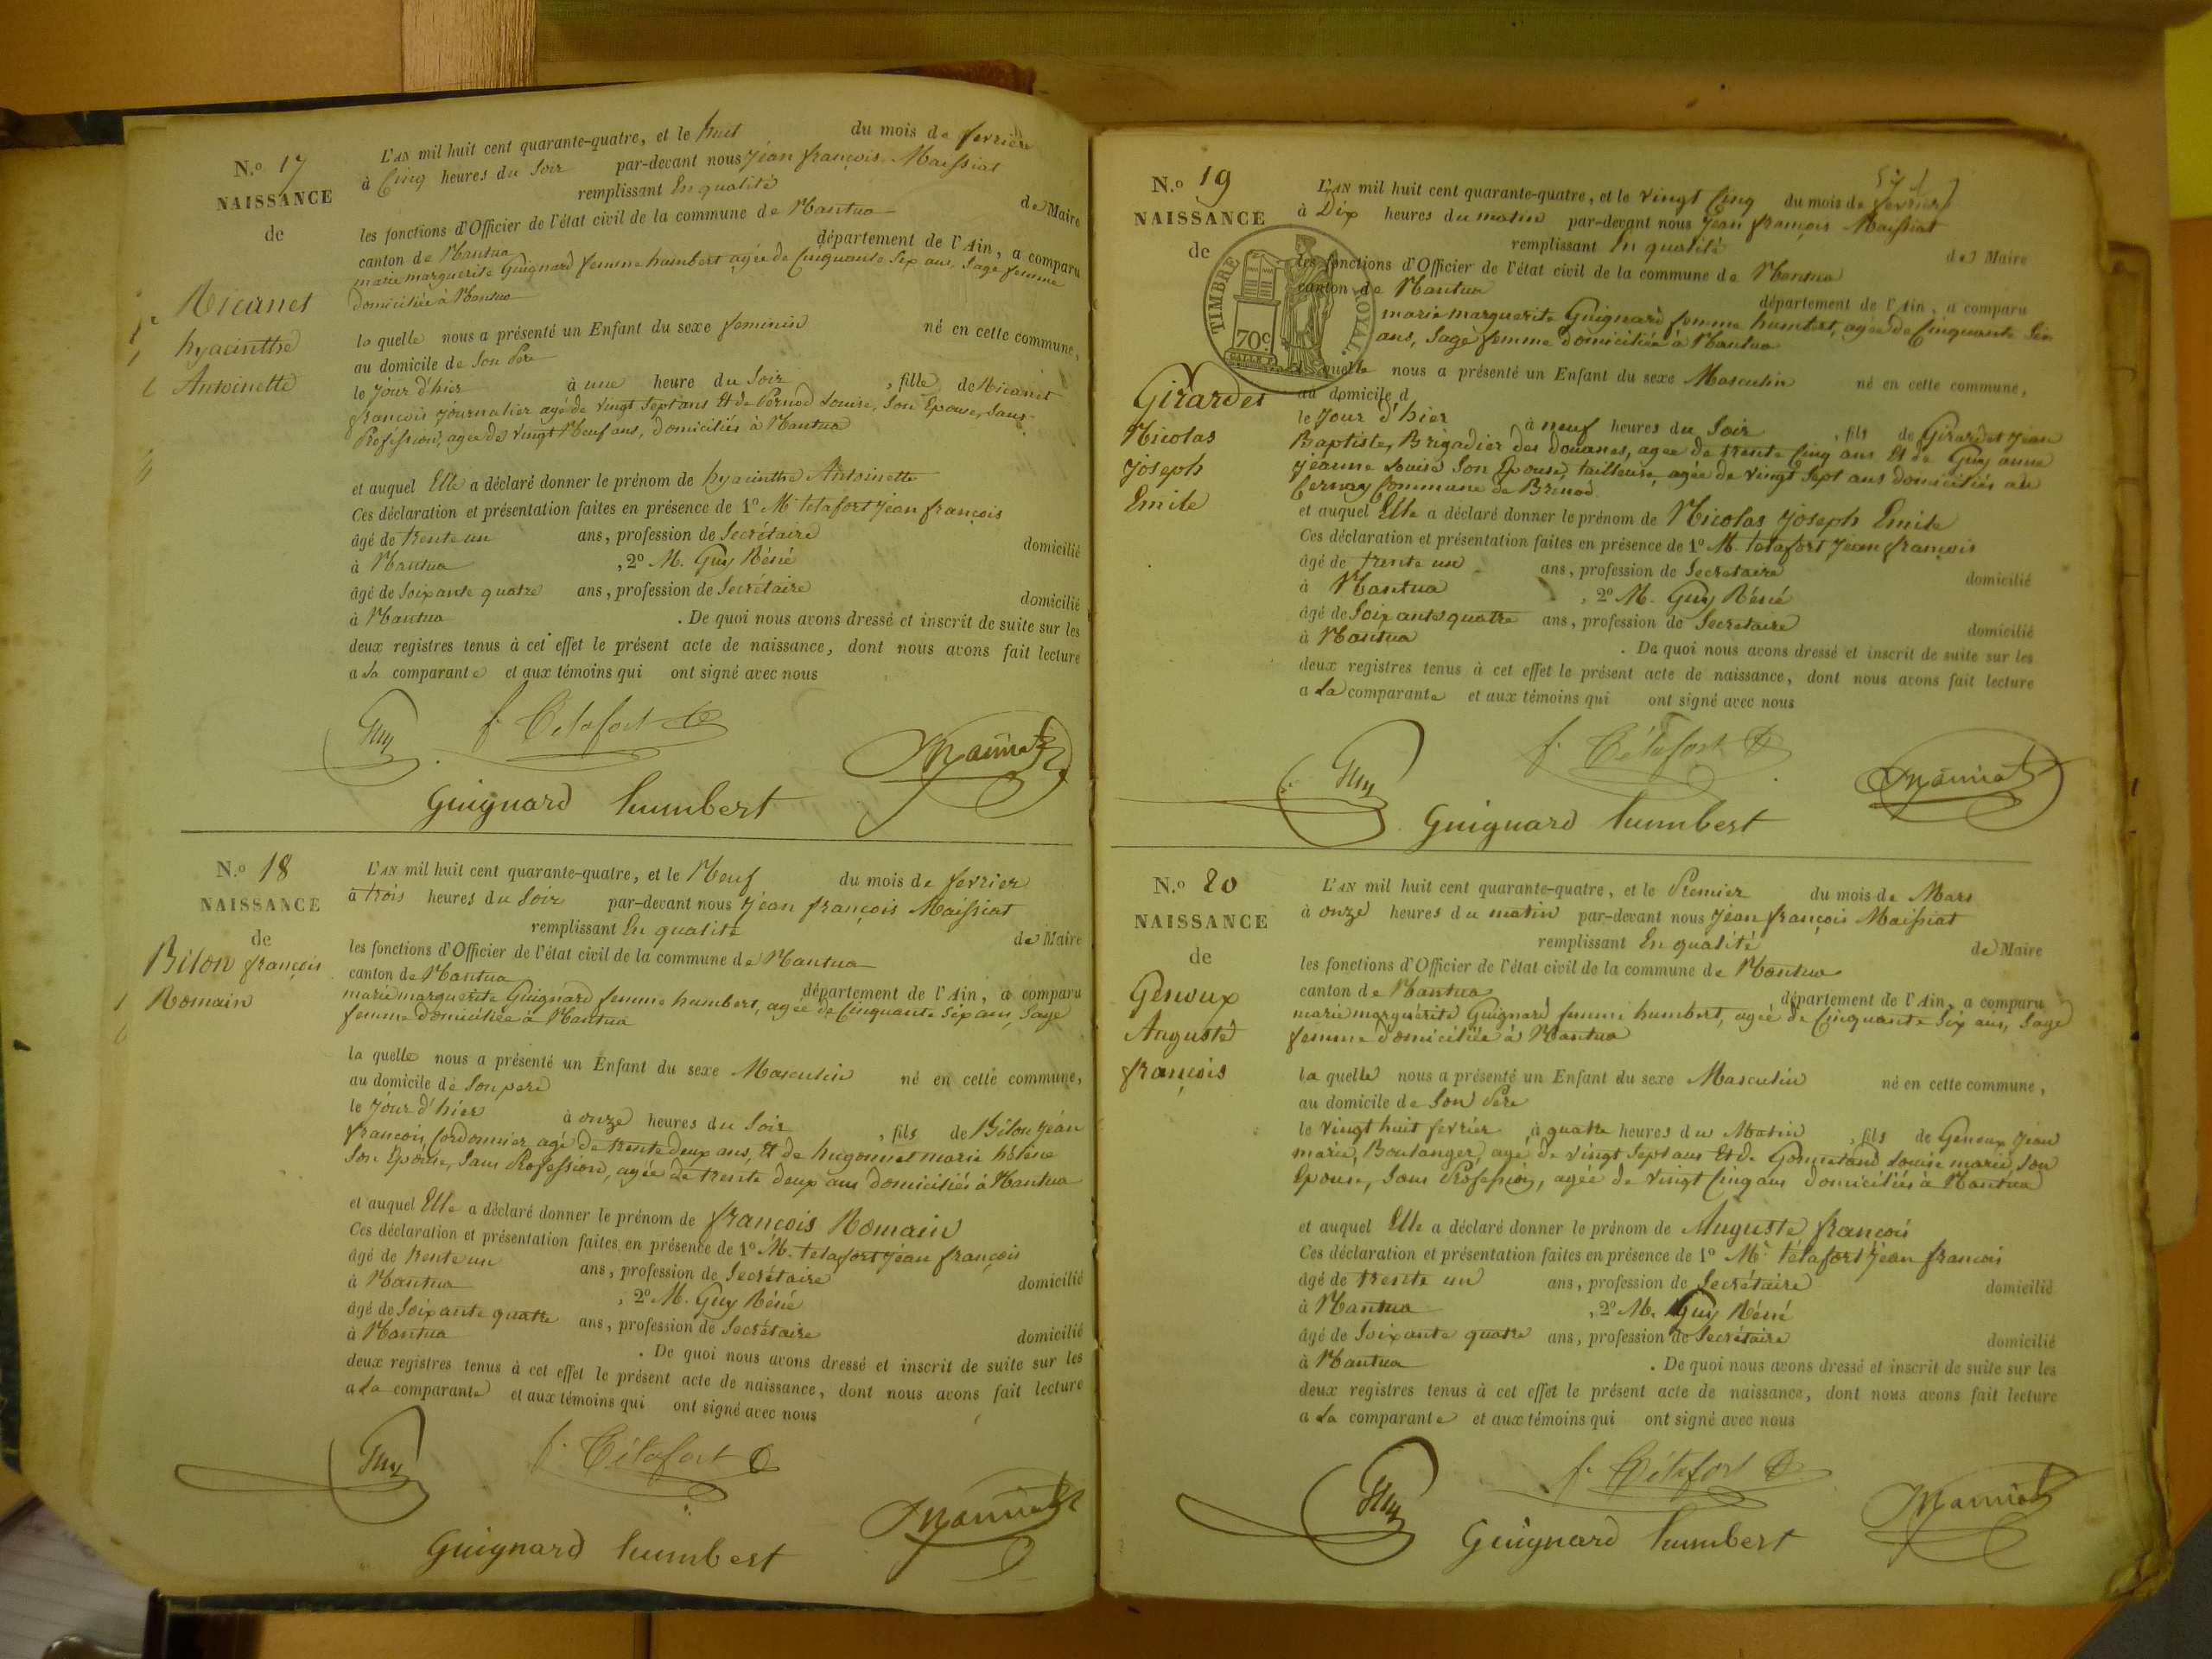 N.o 17
NAISSANCE
de
Nicanet
hyacinthe
Antoinette
L'AN mil huit cent quarante-quatre, et le huit du mois de ferrier
à Cinq heures du Soir par-devant nous jean françois Maissiat
remplissant En qualité de Maire
les fonctions d'Officier de l'état civil de la commune de Nantua
canton de Nantua département de l'Ain, a comparu
marie marguerite Guignard femme humbert agée de Cinquante Six ans, Sage femme
domiciliée à Nantua
la quelle nous a présenté un Enfant du sexe feminin né en cette commune,
au domicile de Son Pere
le jour d'hier à une heure du Soir, fille de Nicanet
françois journalier agé de vingt Sept ans Et de Pernod Louise, Son Epouse, Sans
Profession, agée de vingt Neuf ans, domiciliés à Nantua
et auquel Elle a déclaré donner le prénom de hyacinthe Antoinette
Ces déclaration et présentation faites en présence de 1o M. tetafort jean françois
âgé de trente un ans, profession de Secrétaire domicilié
à Nantua, 2o M. Guy Réné
âgé de Soixante quatre ans, profession de Secrétaire domicilié
à Nantua. De quoi nous avons dressé et inscrit de suite sur les
deux registres tenus à cet effet le présent acte de naissance, dont nous avons fait lecture
a La comparante et aux témoins qui ont signé avec nous
Guy f. Tétafort Maissiat
Guignard humbert
N.o 18
NAISSANCE
de
Bilon françois
Romain
L'AN mil huit cent quarante-quatre, et le Neuf du mois de ferrier
à trois heures du Soir par-devant nous jean françois Maissiat
remplissant En qualité de Maire
les fonctions d'Officier de l'état civil de la commune de Nantua
canton de Nantua département de l'Ain, a comparu
marie marguerite Guignard femme humbert, agée de Cinquante Six ans, Sage
femme domiciliée à Nantua
la quelle nous a présenté un Enfant du sexe Masculin né en cette commune,
au domicile de Son pere
le jour d'hier à onze heures du Soir, fils de Bilon jean
françois, Cordonnier, agé de trente deux ans, Et de hugonnet marie héléne
Son Epouse, Sans Profession, agée de trente deux ans domiciliés à Nantua
et auquel Elle a déclaré donner le prénom de françois Romain
Ces déclaration et présentation faites en présence de 1o M. tetafort jean françois
âgé de trente un ans, profession de Secrétaire domicilié
à Nantua, 2o M. Guy Réné
âgé de Soixante quatre ans, profession de Secrétaire domicilié
à Nantua. De quoi nous avons dressé et inscrit de suite sur les
deux registres tenus à cet effet le présent acte de naissance, dont nous avons fait lecture
a La comparante et aux témoins qui ont signé avec nous
Guy f. Tétafort Maissiat
Guignard humbert
N.o 19
NAISSANCE
de
TIMBRE ROYAL.
70c.
Girardet
Nicolas
joseph
Emile
L'AN mil huit cent quarante-quatre, et le vingt Cinq du mois de ferrier
à Dix heures du matin par-devant nous jean françois Maissiat
remplissant En qualité de Maire
les fonctions d'Officier de l'état civil de la commune de Nantua
canton de Nantua département de l'Ain, a comparu
marie marguerite Guignard femme humbert, agée de Cinquante Six
ans, Sage femme domiciliée à Nantua
la quelle nous a présenté un Enfant du sexe Masculin né en cette commune,
au domicile d
le jour d'hier à neuf heures du Soir, fils de Girardet jean
Baptiste, Brigadier des douanes, agée de trente Cinq ans Et de Guy anne
jeanne Louise Son Epouse, tailleuse, agée de vingt Sept ans domiciliés au
Cernay Commune de Brenod
et auquel Elle a déclaré donner le prénom de Nicolas joseph Emile
Ces déclaration et présentation faites en présence de 1o M. tetafort jean françois
âgé de trente un ans, profession de Secretaire domicilié
à Nantua, 2o M. Guy Réné
âgé de Soixante quatre ans, profession de Secretaire domicilié
à Nantua. De quoi nous avons dressé et inscrit de suite sur les
deux registres tenus à cet effet le présent acte de naissance, dont nous avons fait lecture
a La comparante et aux témoins qui ont signé avec nous
Guy f. Tétafort Maissiat
Guignard humbert
N.o 20
NAISSANCE
de
Genoux
Auguste
françois
L'AN mil huit cent quarante-quatre, et le Premier du mois de Mars
à onze heures du matin par-devant nous jean françois Maissiat
remplissant En qualité de Maire
les fonctions d'Officier de l'état civil de la commune de Nantua
canton de Nantua, département de l'Ain, a comparu
marie marguerite Guignard femme humbert, agée de Cinquante Six ans, Sage
femme domiciliée à Nantua
la quelle nous a présenté un Enfant du sexe Masculin né en cette commune,
au domicile de Son Pere
le vingt huit fevrier, à quatre heures du Matin, fils de Genoux jean
marie, Boulanger, agé de vingt Sept ans Et de Louise marie, Son
Epouse, Sans Profession, agée de vingt Cinq ans domiciliés à Nantua
et auquel Elle a déclaré donner le prénom de Auguste françois
Ces déclaration et présentation faites en présence de 1o Mr. tétafort jean françois
âgé de trente un ans, profession de Secrétaire domicilié
à Nantua, 2o M. Guy Réné
âgé de Soixante quatre ans, profession de Secrétaire domicilié
à Nantua. De quoi nous avons dressé et inscrit de suite sur les
deux registres tenus à cet effet le présent acte de naissance, dont nous avons fait lecture
a La comparante et aux témoins qui ont signé avec nous
Guy f. Tétafort Maissiat
Guignard humbert